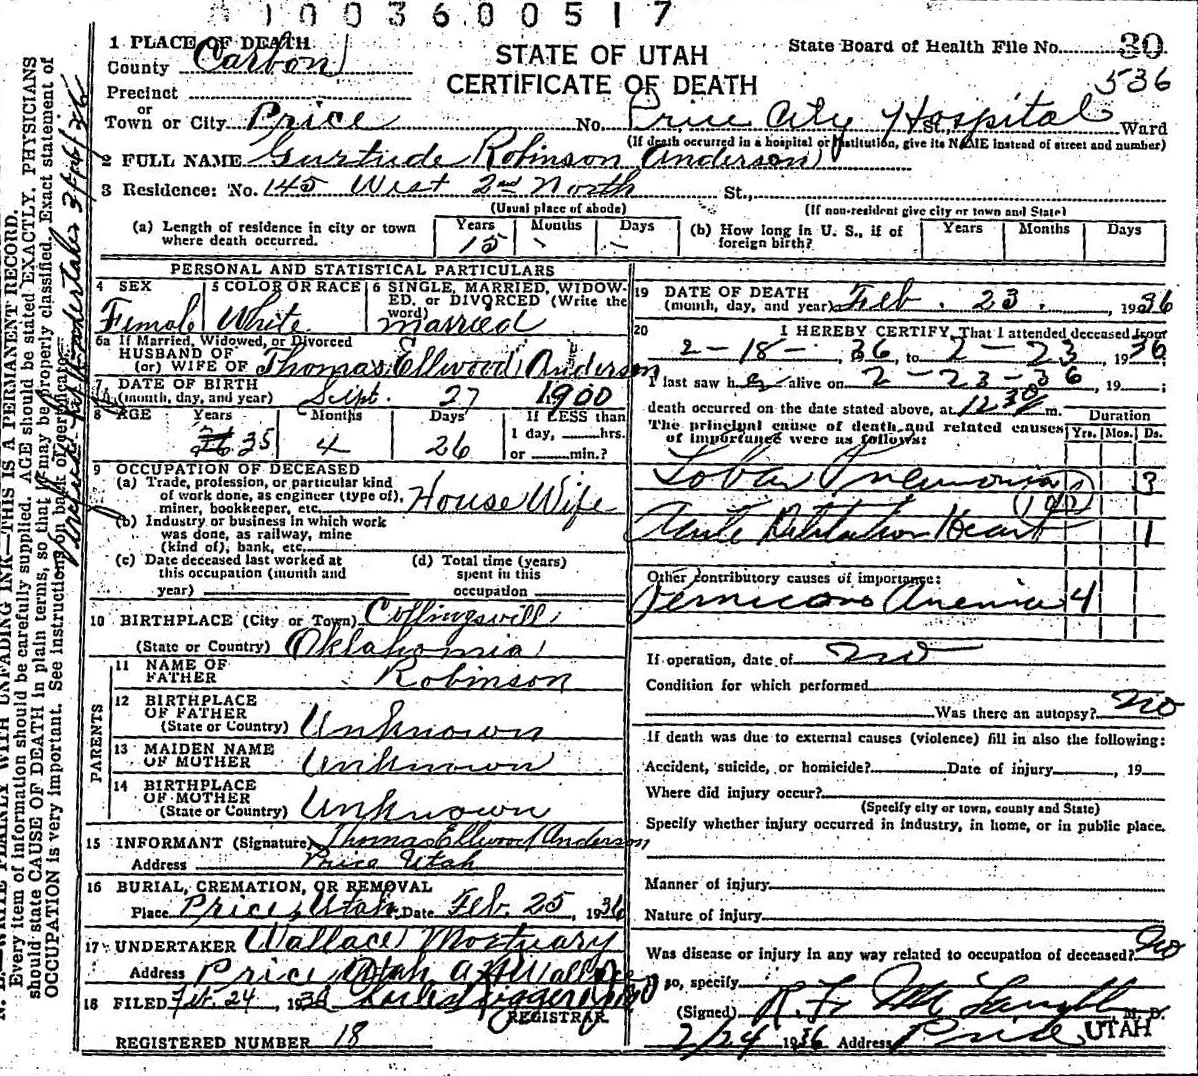 1003600517
1 PLACE OF DEATH
STATE OF UTAH
CERTIFICATE OF DEATH
State Board of Health File No. 30
536
County Carbon
Precinct
or
Town or City Price No. Price City Hospital St., Ward
(If death occurred in a hospital or institution, give its NAME instead of street and number)
2 FULL NAME Gurtrude Robinson Anderson
3 Residence: No. 145 West 2nd North St.,
(Usual place of abode) (If non-resident give city or town and State)
(a) Length of residence in city or town where death occurred. Years 15 Months - Days - (b) How long in U. S., if of foreign birth? Years Months Days
PERSONAL AND STATISTICAL PARTICULARS
4 SEX Female
5 COLOR OR RACE White
6 SINGLE, MARRIED, WIDOW-
ED, or DIVORCED (Write the
word) married
6a If Married, Widowed, or Divorced
HUSBAND OF
(or) WIFE OF Thomas Ellwood Anderson
7 DATE OF BIRTH
(month, day, and year) Sept. 27 1900
8 AGE Years 35 Months 4 Days 26 If LESS than
1 day, hrs.
or min.?
9 OCCUPATION OF DECEASED
(a) Trade, profession, or particular kind
of work done, as engineer (type of),
miner, bookkeeper, etc. House Wife
(b) Industry or business in which work
was done, as railway, mine
(kind of), bank, etc.
(c) Date deceased last worked at
this occupation (month and
year)
(d) Total time (years)
spent in this
occupation
10 BIRTHPLACE (City or Town) Collingsvill
(State or Country) Oklahomia
PARENTS
11 NAME OF
FATHER Robinson
12 BIRTHPLACE
OF FATHER
(State or Country) Unknown
13 MAIDEN NAME
OF MOTHER Unknown
14 BIRTHPLACE
OF MOTHER
(State or Country) Unknown
15 INFORMANT (Signature) Thomas Ellwood Anderson
Address Price Utah
16 BURIAL, CREMATION, OR REMOVAL
Place Price, Utah Date Feb. 25, 1936
17 UNDERTAKER Wallace Mortuary
Address Price Utah
18 FILED Feb. 24, 1936
REGISTRAR
REGISTERED NUMBER 18
19 DATE OF DEATH
(month, day, and year) Feb. 23. 1936
20 I HEREBY CERTIFY, That I attended deceased from
2-18-, 36, to 2-23, 1936
I last saw h er alive on 2-23-36, 19 ;
death occurred on the date stated above, at 12 30 m.
The principal cause of death and related causes
of importance were as follows:
Duration
Yrs. Mos. Ds.
Lobar Pnemonia 3
Acute Dilitation Heart 1
Other contributory causes of importance:
Pernicous Anemia 4
If operation, date of no
Condition for which performed
Was there an autopsy? no
If death was due to external causes (violence) fill in also the following:
Accident, suicide, or homicide? Date of injury , 19
Where did injury occur?
(Specify city or town, county and State)
Specify whether injury occurred in industry, in home, or in public place.
Manner of injury
Nature of injury
Was disease or injury in any way related to occupation of deceased? No
If so, specify
(Signed) M. D.
2/24 1936 Address Price UTAH
N. B.—WRITE PLAINLY WITH UNFADING INK—THIS IS A PERMANENT RECORD.
Every item of information should be carefully supplied. AGE should be stated EXACTLY. PHYSICIANS
should state CAUSE OF DEATH in plain terms, so that it may be properly classified. Exact statement of
OCCUPATION is very important. See instructions on back of certificate.